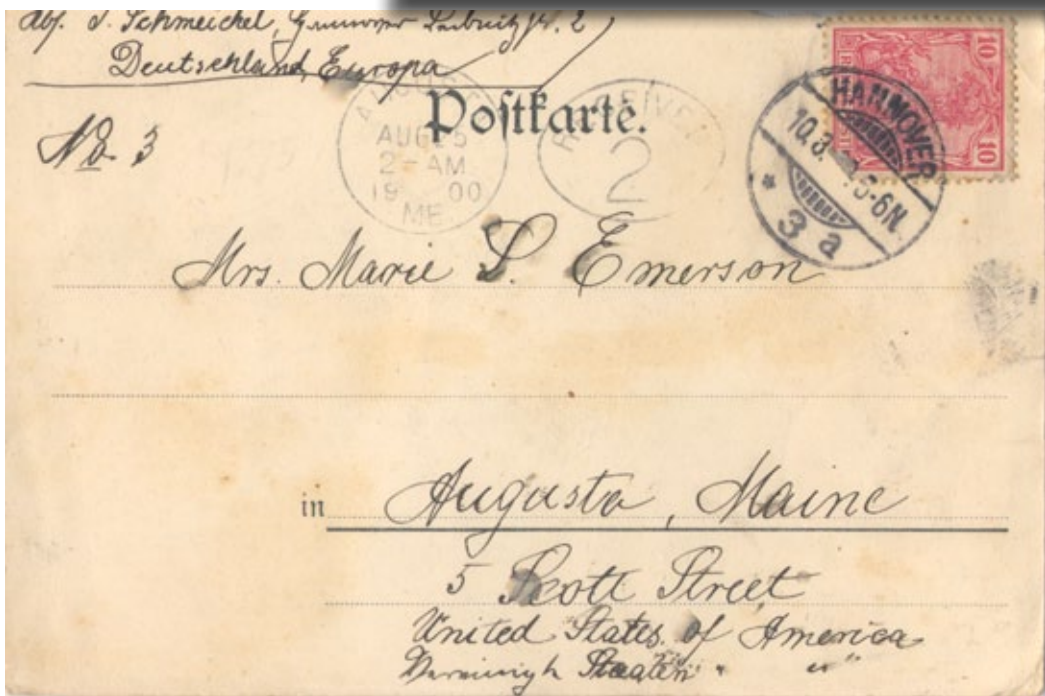 Abf. J. Schmeichel, Hannover Leibnitzstr. 2
Deutschland, Europa
No. 3
Postkarte.
AUG 25
2 - AM
19 00
ME.
RECEIVED
2
10
10
HANNOVER
10.8. 5-6N.
* 3 a
Mrs. Marie L. Emerson
in Augusta, Maine
5 Scott Street
United States of America
Staaten " "